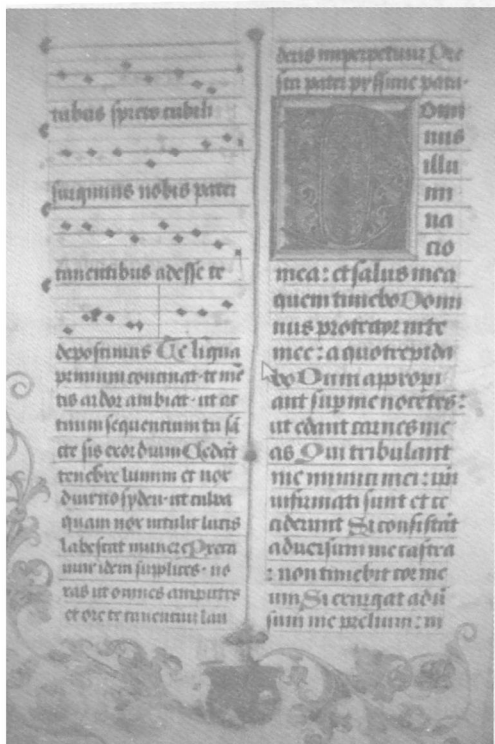 tubus spreto cubili
surgimus nobis pater
canentibus adesse te
deposcimus Te ligua
primum concinat · te mē
tis ardor ambiat · ut ac
tuum sequentium tu sā
cte sis exordium Cedāt
tenebre lumini et nox
diurno syderi · ut culpa
quam nox intulit lucis
labescat munere Preca
mur idem suplices · no
xas ut omnes amputes
et ore te canentium lau
deris imperpetuum Pre
sta pater pyssime patri ·
Domi
nus
illu
mi
na
cio
mea : et salus mea
quem timebo Domi
nus protector vite
mee : a quo trepida
bo Dum appropi
ant sup me nocētes :
ut edant carnes me
as Qui tribulant
me inimici mei : ipi
infirmati sunt et ce
ciderunt Si consistāt
adversum me castra
: non timebit cor me
um Si exurgat adv̄
sum me prelium : in